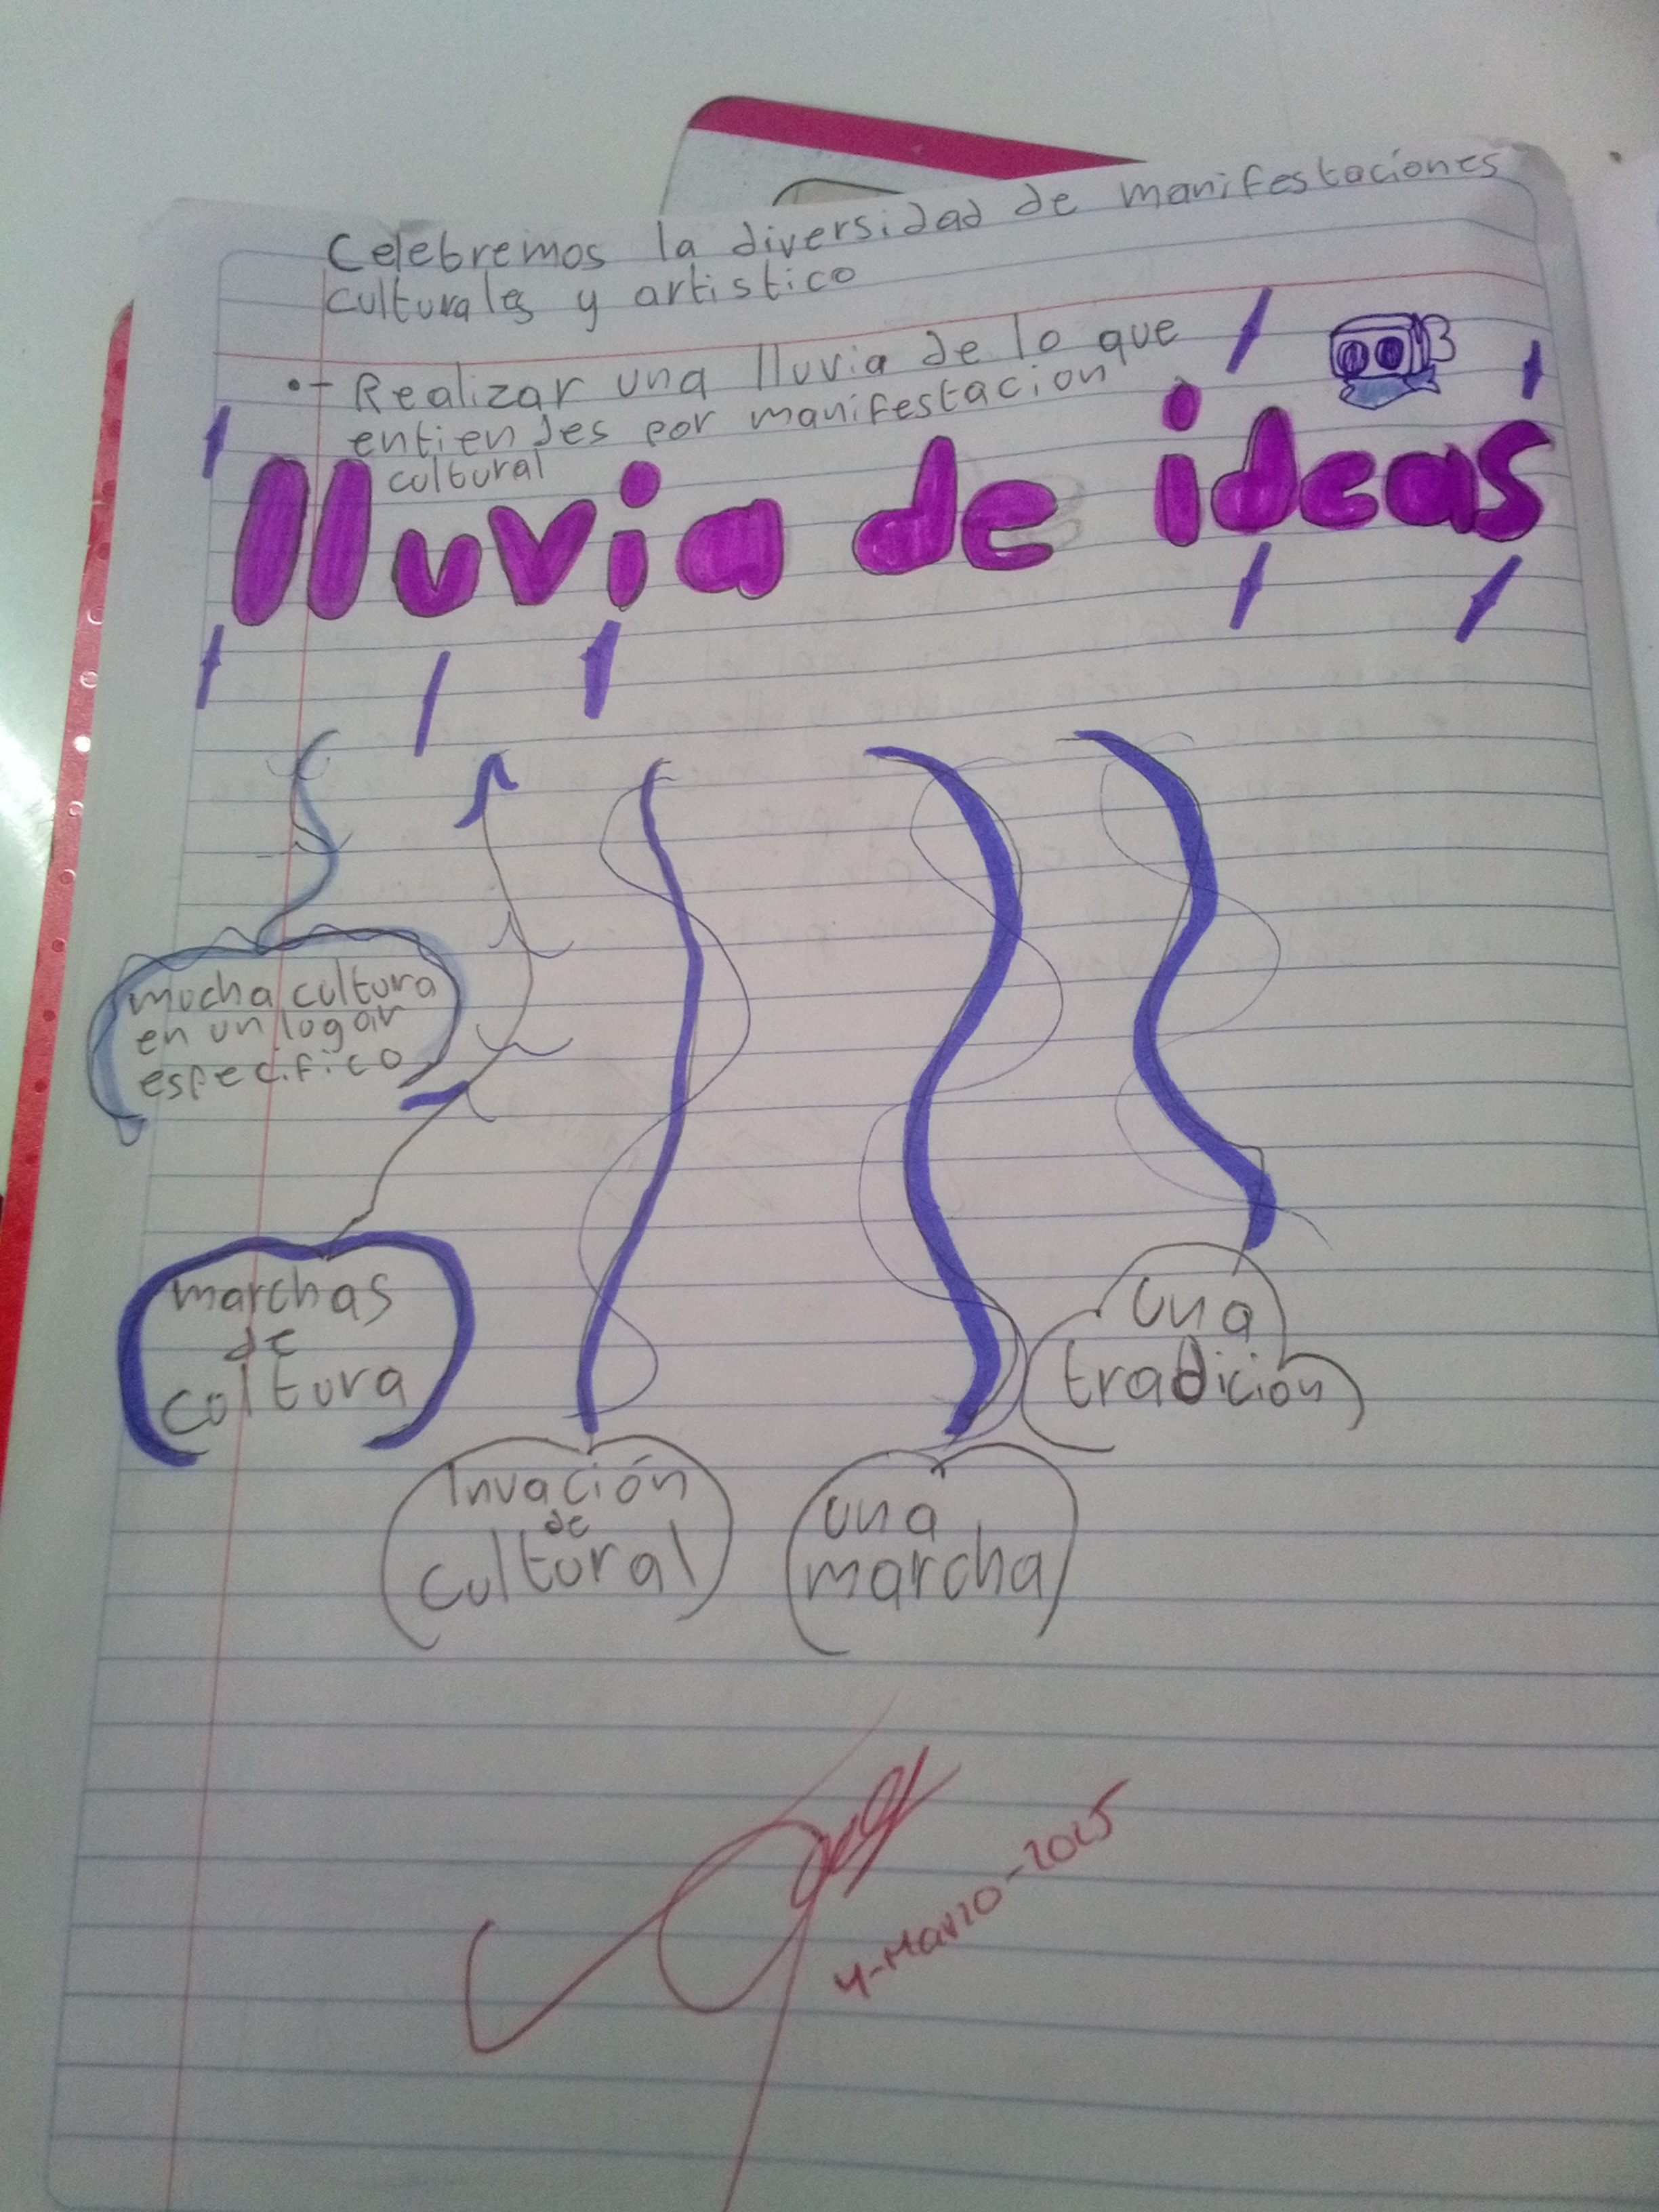 Celebremos la diversidad de manifestaciones
culturales y artistico
•- Realizar una lluvia de lo que
entiendes por manifestacion
cultural
lluvia de ideas
mucha cultura
en un lugar
especifico
marchas
de
cultura
Invación
de
cultural
una
marcha
una
tradición
4-Marzo-2025